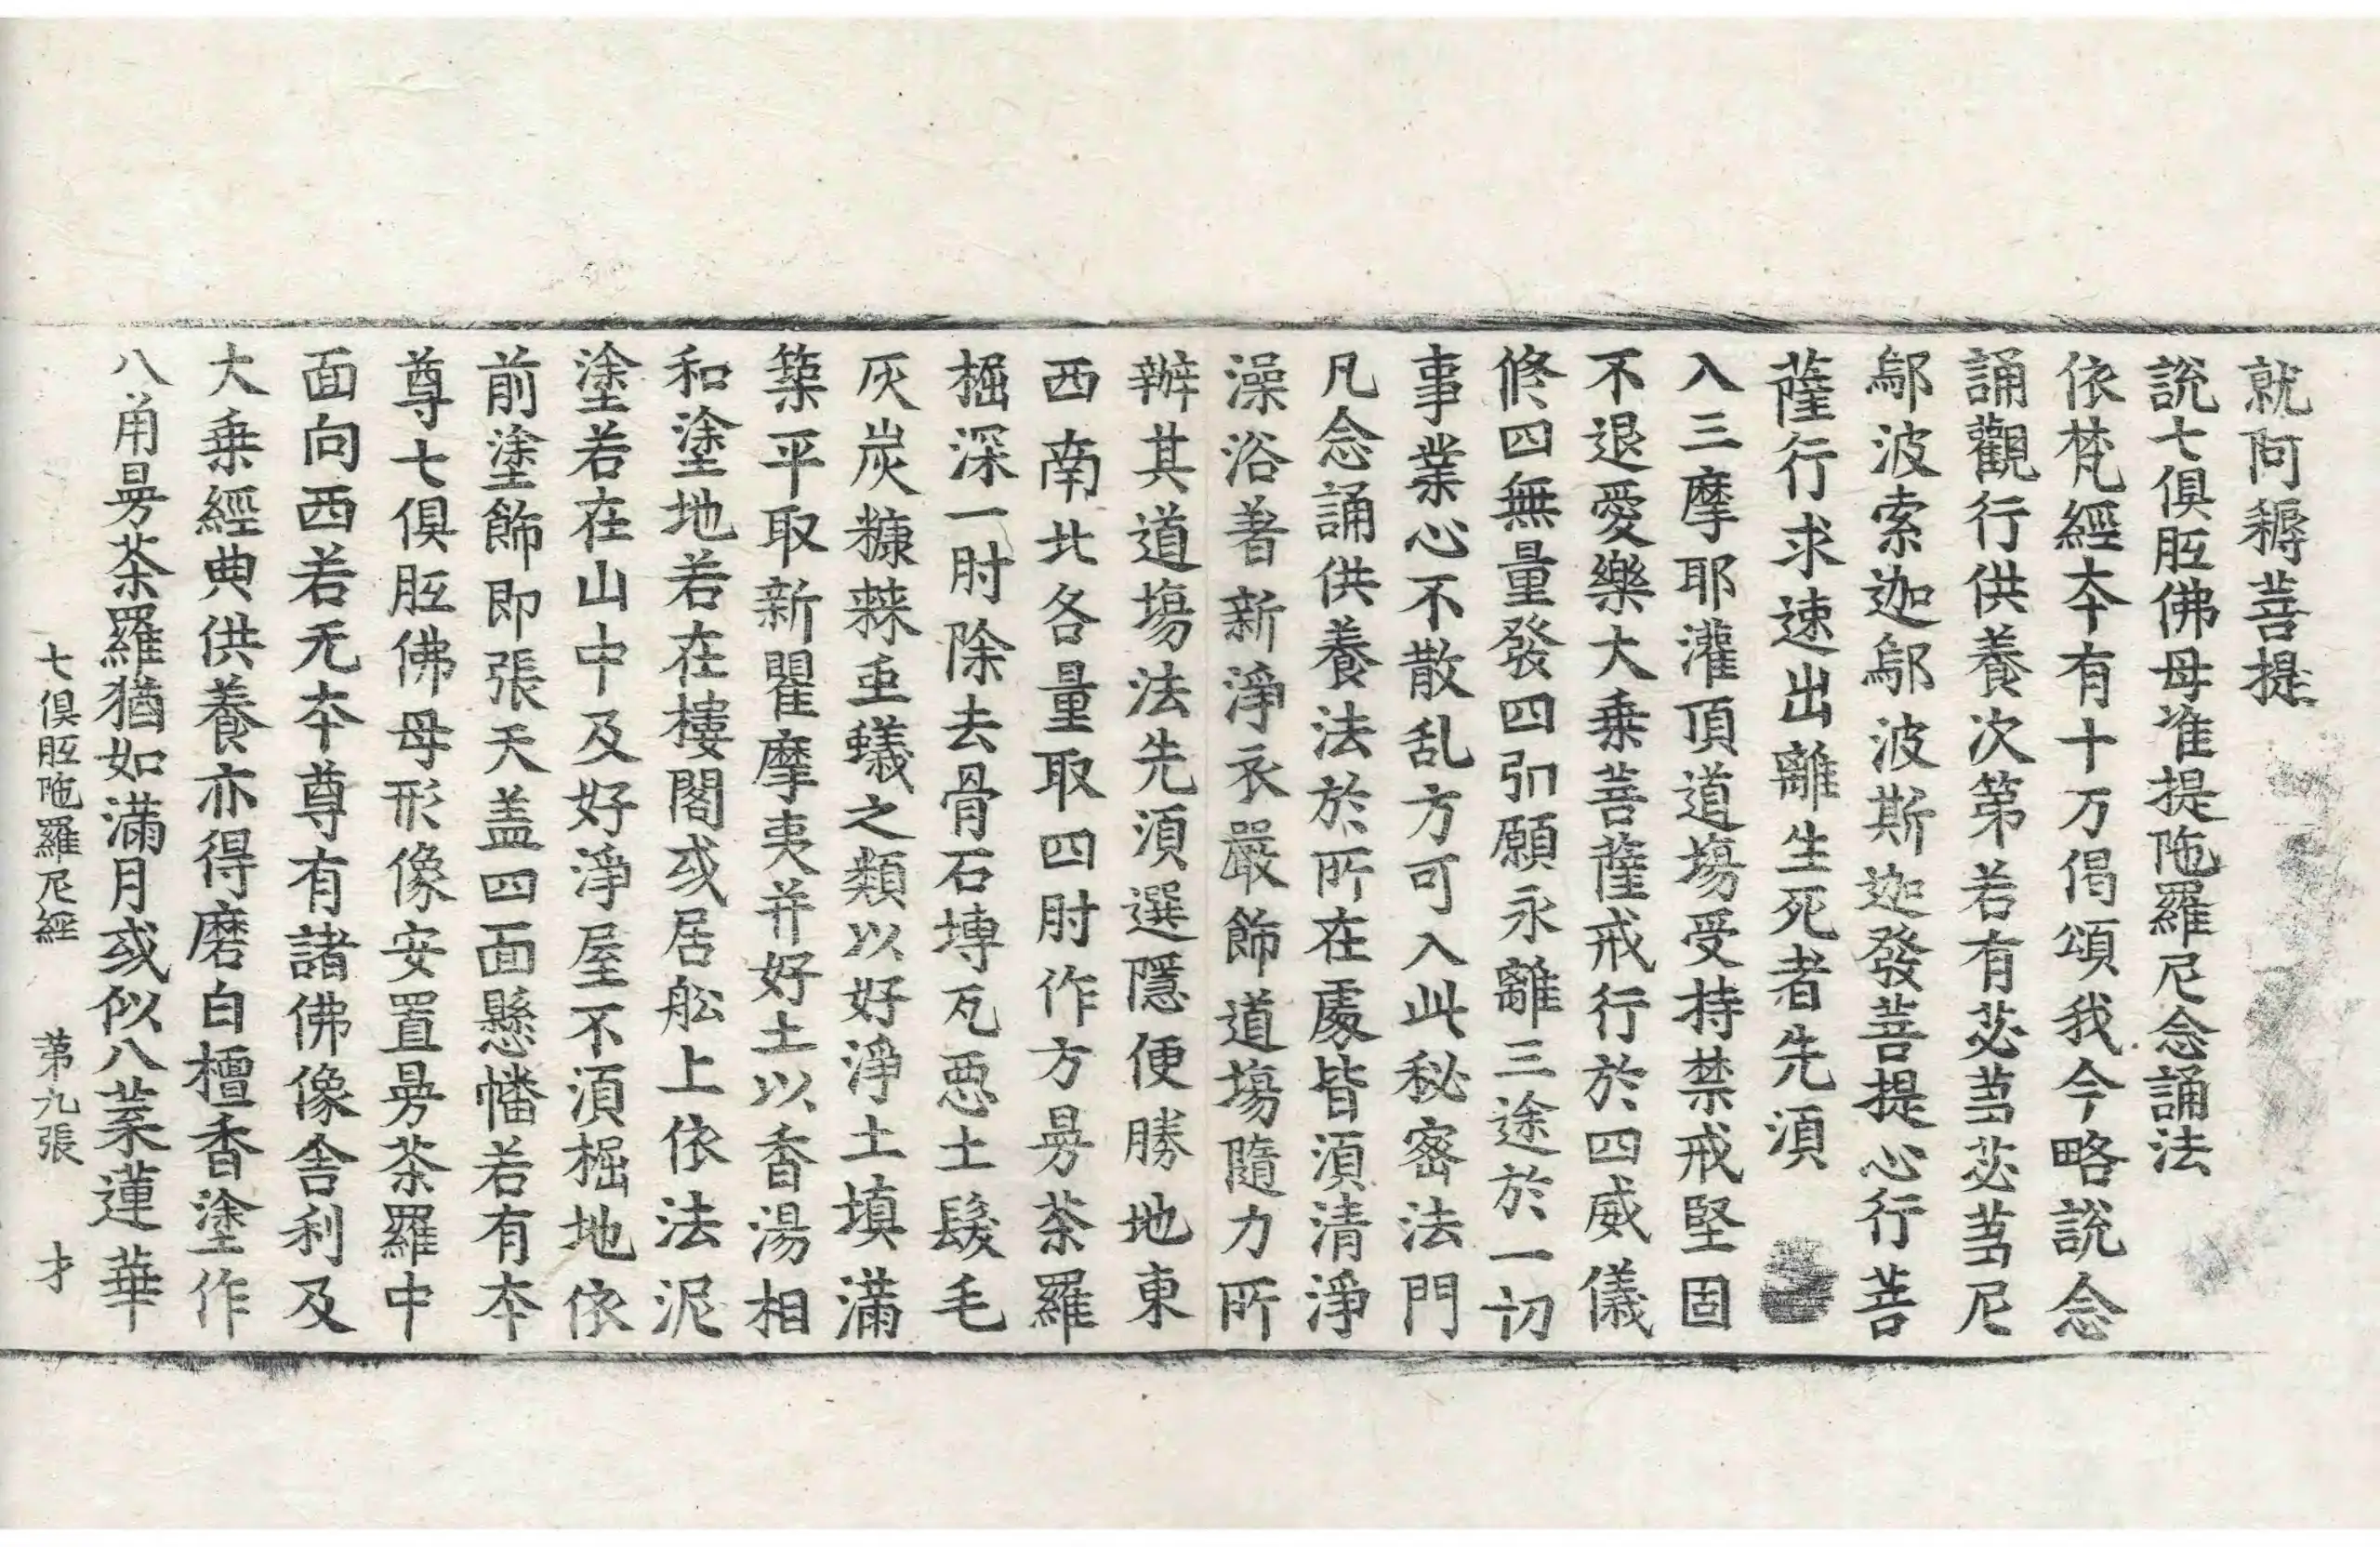 就阿耨菩提
說七俱胝佛母准提陁羅尼念誦法
依梵經夲有十万偈頌我今略說念
誦觀行供養次第若有苾芻苾芻尼
鄔波索迦鄔波斯迦發菩提心行菩
薩行求速出離生死者先湏
入三摩耶灌頂道塲受持禁戒堅固
不退愛樂大乗菩薩戒行於四威儀
修四無量發四弘願永離三途於一切
事業心不散乱方可入此秘密法門
凡念誦供養法於所在處皆湏清淨
澡浴著新淨衣嚴飾道塲隨力所
辦其道塲法先湏選隱便勝地東
西南北各量取四肘作方曼荼羅
掘深一肘除去骨石塼瓦惡土髮毛
灰炭糠棘虫蟻之類以好淨土填滿
築平取新瞿摩夷并好土以香湯相
和塗地若在樓閣或居舩上依法泥
塗若在山中及好淨屋不湏掘地依
前塗飾即張天盖四面懸幡若有夲
尊七俱胝佛母形像安置曼荼羅中
面向西若无夲尊有諸佛像舍利及
大乗經典供養亦得磨白檀香塗作
八角曼荼羅猶如滿月或似八葉蓮華
七俱胝陁羅尼經 苐九張 才